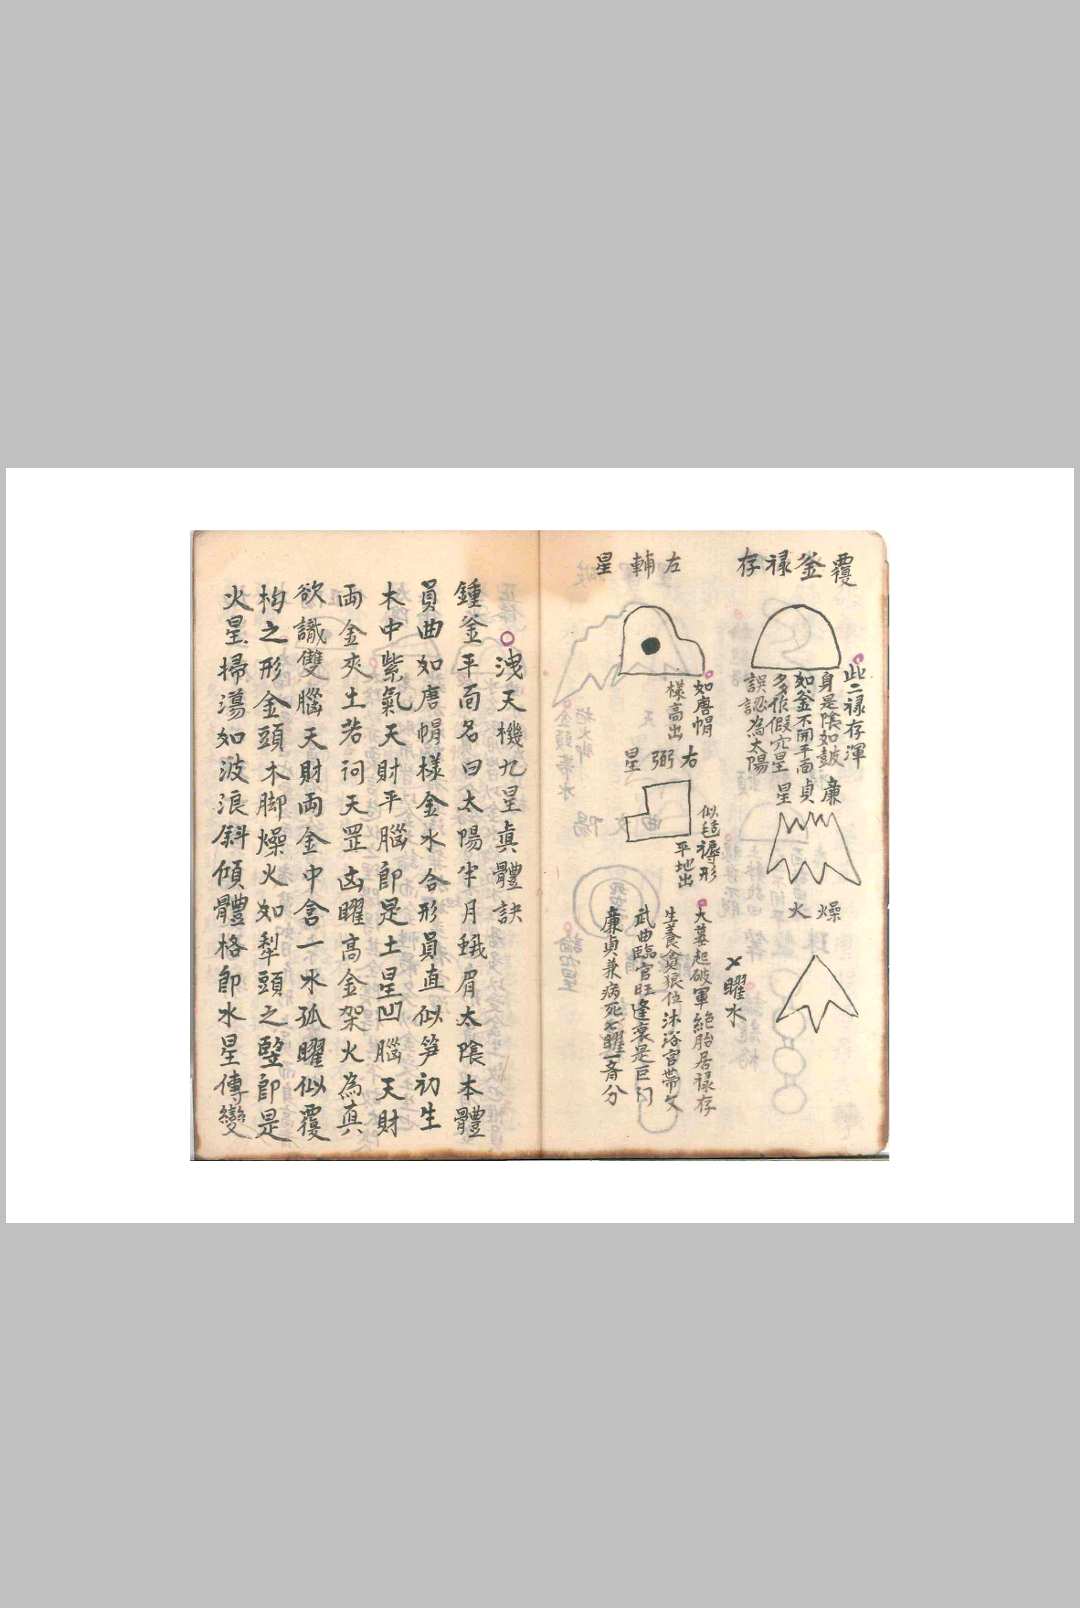 覆釜禄存
此二禄存渾
身是陰如皷
如釜不開平面
多作假穴星
誤認為太陽
廉貞星
燥火
左輔星
如唐帽
樣高出
右弼星
似毡褥形
平地出
曜水
大墓起破軍絶胎居禄存
生養貪狼位沐浴宮帶文
武曲臨官旺逢衰是巨门
廉貞兼病死七曜一斉分
洩天機九星真體訣
鍾釜平面名曰太陽半月蛾眉太陰本體
員曲如唐帽樣金水合形員直似笋初生
木中紫氣天財平腦即是土星凹腦天財
両金夾土若祠天罡凶曜高金架火為真
欲識雙腦天財両金中含一水孤曜似覆
杓之形金頭木脚燥火如犁頭之竪即是
火星掃蕩如波浪斜傾體格即水星傳變